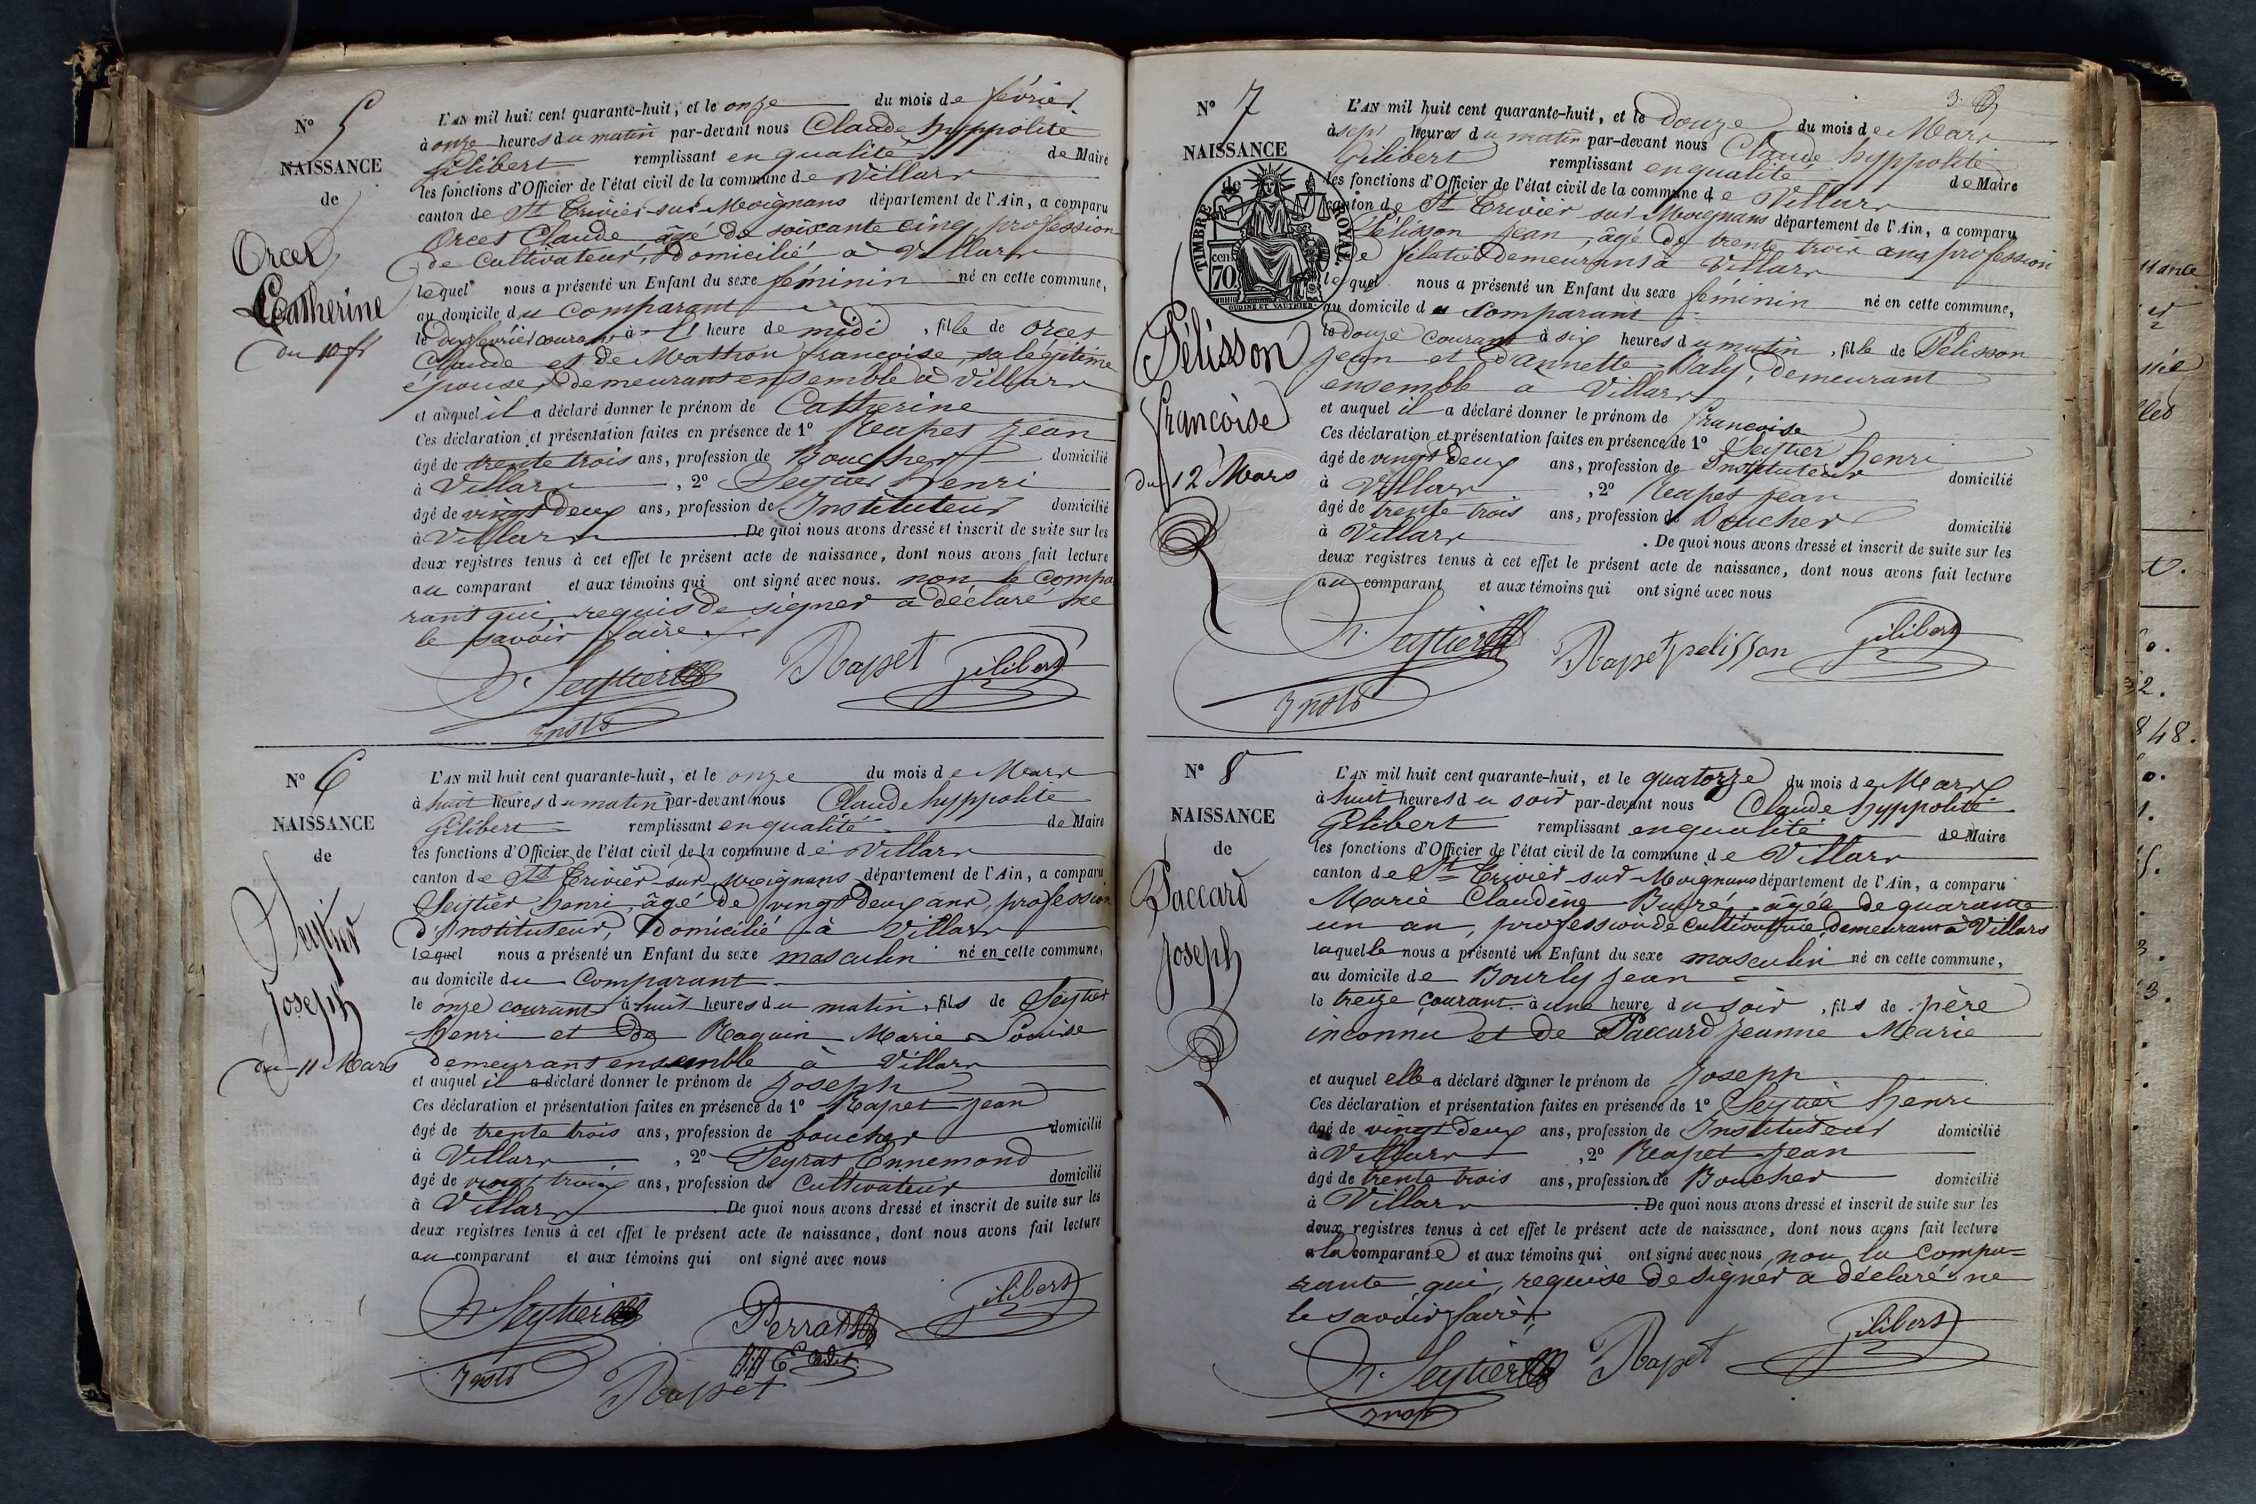 N° 5
NAISSANCE
de
Orcet
Catherine
du 10 fr
L'AN mil huit cent quarante-huit, et le onze du mois de février
à onze heures du matin par-devant nous Claude hyppolite
Gilibert remplissant en qualité de Maire
les fonctions d'Officier de l'état civil de la commune de Villars
canton de St Trivier sur Moignans département de l'Ain, a comparu
Orcet Claude âgé de soixante cinq profession
de Cultivateur, domicilié à Villars
lequel nous a présenté un Enfant du sexe féminin né en cette commune,
au domicile du Comparant
le dix février courant à heure de midi, fille de Orcet
Claude et de Mathon françoise, sa légitime
épouse, demeurant ensemble à Villars
et auquel il a déclaré donner le prénom de Catherine
Ces déclaration et présentation faites en présence de 1° Rapet jean
âgé de trente trois ans, profession de Boucher domicilié
à Villars, 2° Seytier henri
âgé de vingt deux ans, profession de Instituteur domicilié
à Villars. De quoi nous avons dressé et inscrit de suite sur les
deux registres tenus à cet effet le présent acte de naissance, dont nous avons fait lecture
au comparant et aux témoins qui ont signé avec nous. non le compa
rant qui, requis de signer a déclaré ne
le savoir faire.
h. Seytier Rapet Gilibert
Inst
N° 6
NAISSANCE
de
Seytier
Joseph
du 11 Mars
L'AN mil huit cent quarante-huit, et le onze du mois de Mars
à huit heures du matin par-devant nous Claude hyppolite
Gilibert remplissant en qualité de Maire
les fonctions d'Officier de l'état civil de la commune de Villars
canton de St Trivier sur Moignans département de l'Ain, a comparu
Seytier henri, âgé de vingt deux ans, profession
d'Instituteur, domicilié à Villars
lequel nous a présenté un Enfant du sexe masculin né en cette commune,
au domicile du Comparant
le onze courant à huit heures du matin, fils de Seytier
henri et de Raquin Marie Louise
demeurant ensemble à Villars
et auquel il a déclaré donner le prénom de Joseph
Ces déclaration et présentation faites en présence de 1° Rapet jean
âgé de trente trois ans, profession de boucher domicilié
à Villars, 2° Peyrat Ennemond
âgé de vingt trois ans, profession de Cultivateur domicilié
à Villars. De quoi nous avons dressé et inscrit de suite sur les
deux registres tenus à cet effet le présent acte de naissance, dont nous avons fait lecture
au comparant et aux témoins qui ont signé avec nous
h. Seytier Perrat Gilibert
Inst Cadet
Rapet
3.
N° 7
NAISSANCE
de
TIMBRE ROYAL
70 cent
OUDINÉ ET VAUTHIER
Pélisson
francoise
du 12 Mars
L'AN mil huit cent quarante-huit, et le Douze du mois de Mars
à sept heures du matin par-devant nous Claude hyppolite
Gilibert remplissant en qualité de Maire
les fonctions d'Officier de l'état civil de la commune de Villars
canton de St Trivier sur Moignans département de l'Ain, a comparu
Pélisson jean, âgé de trente trois ans profession
de demeurant à Villars
lequel nous a présenté un Enfant du sexe féminin né en cette commune,
au domicile du Comparant
le douze courant à six heures du matin, fille de Pélisson
jean et d'annette Baly, demeurant
ensemble à Villars
et auquel il a déclaré donner le prénom de francoise
Ces déclaration et présentation faites en présence de 1° Seytier henri
âgé de vingt deux ans, profession de Instituteur domicilié
à Villars, 2° Rapet jean
âgé de trente trois ans, profession de Boucher domicilié
à Villars. De quoi nous avons dressé et inscrit de suite sur les
deux registres tenus à cet effet le présent acte de naissance, dont nous avons fait lecture
au comparant et aux témoins qui ont signé avec nous
h. Seytier Rapet pelisson Gilibert
Inst
N° 8
NAISSANCE
de
Paccard
Joseph
L'AN mil huit cent quarante-huit, et le quatorze du mois de Mars
à huit heures du soir par-devant nous Claude hyppolite
Gilibert remplissant en qualité de Maire
les fonctions d'Officier de l'état civil de la commune de Villars
canton de St Trivier sur Moignans département de l'Ain, a comparu
Marie Claudine âgée de quarante
un an, profession de Cultivatrice, demeurant à Villars
laquelle nous a présenté un Enfant du sexe masculin né en cette commune,
au domicile de Bourly jean
le treize courant à une heure du soir, fils de père
inconnu et de Paccard jeanne Marie
et auquel elle a déclaré donner le prénom de Joseph
Ces déclaration et présentation faites en présence de 1° Seytier henri
âgé de vingt deux ans, profession de Instituteur domicilié
à Villars, 2° Rapet jean
âgé de trente trois ans, profession de Boucher domicilié
à Villars. De quoi nous avons dressé et inscrit de suite sur les
deux registres tenus à cet effet le présent acte de naissance, dont nous avons fait lecture
a la comparante et aux témoins qui ont signé avec nous, non la compa=
rante qui, requise de signer a déclaré ne
le savoir faire.
h. Seytier Rapet Gilibert
Inst